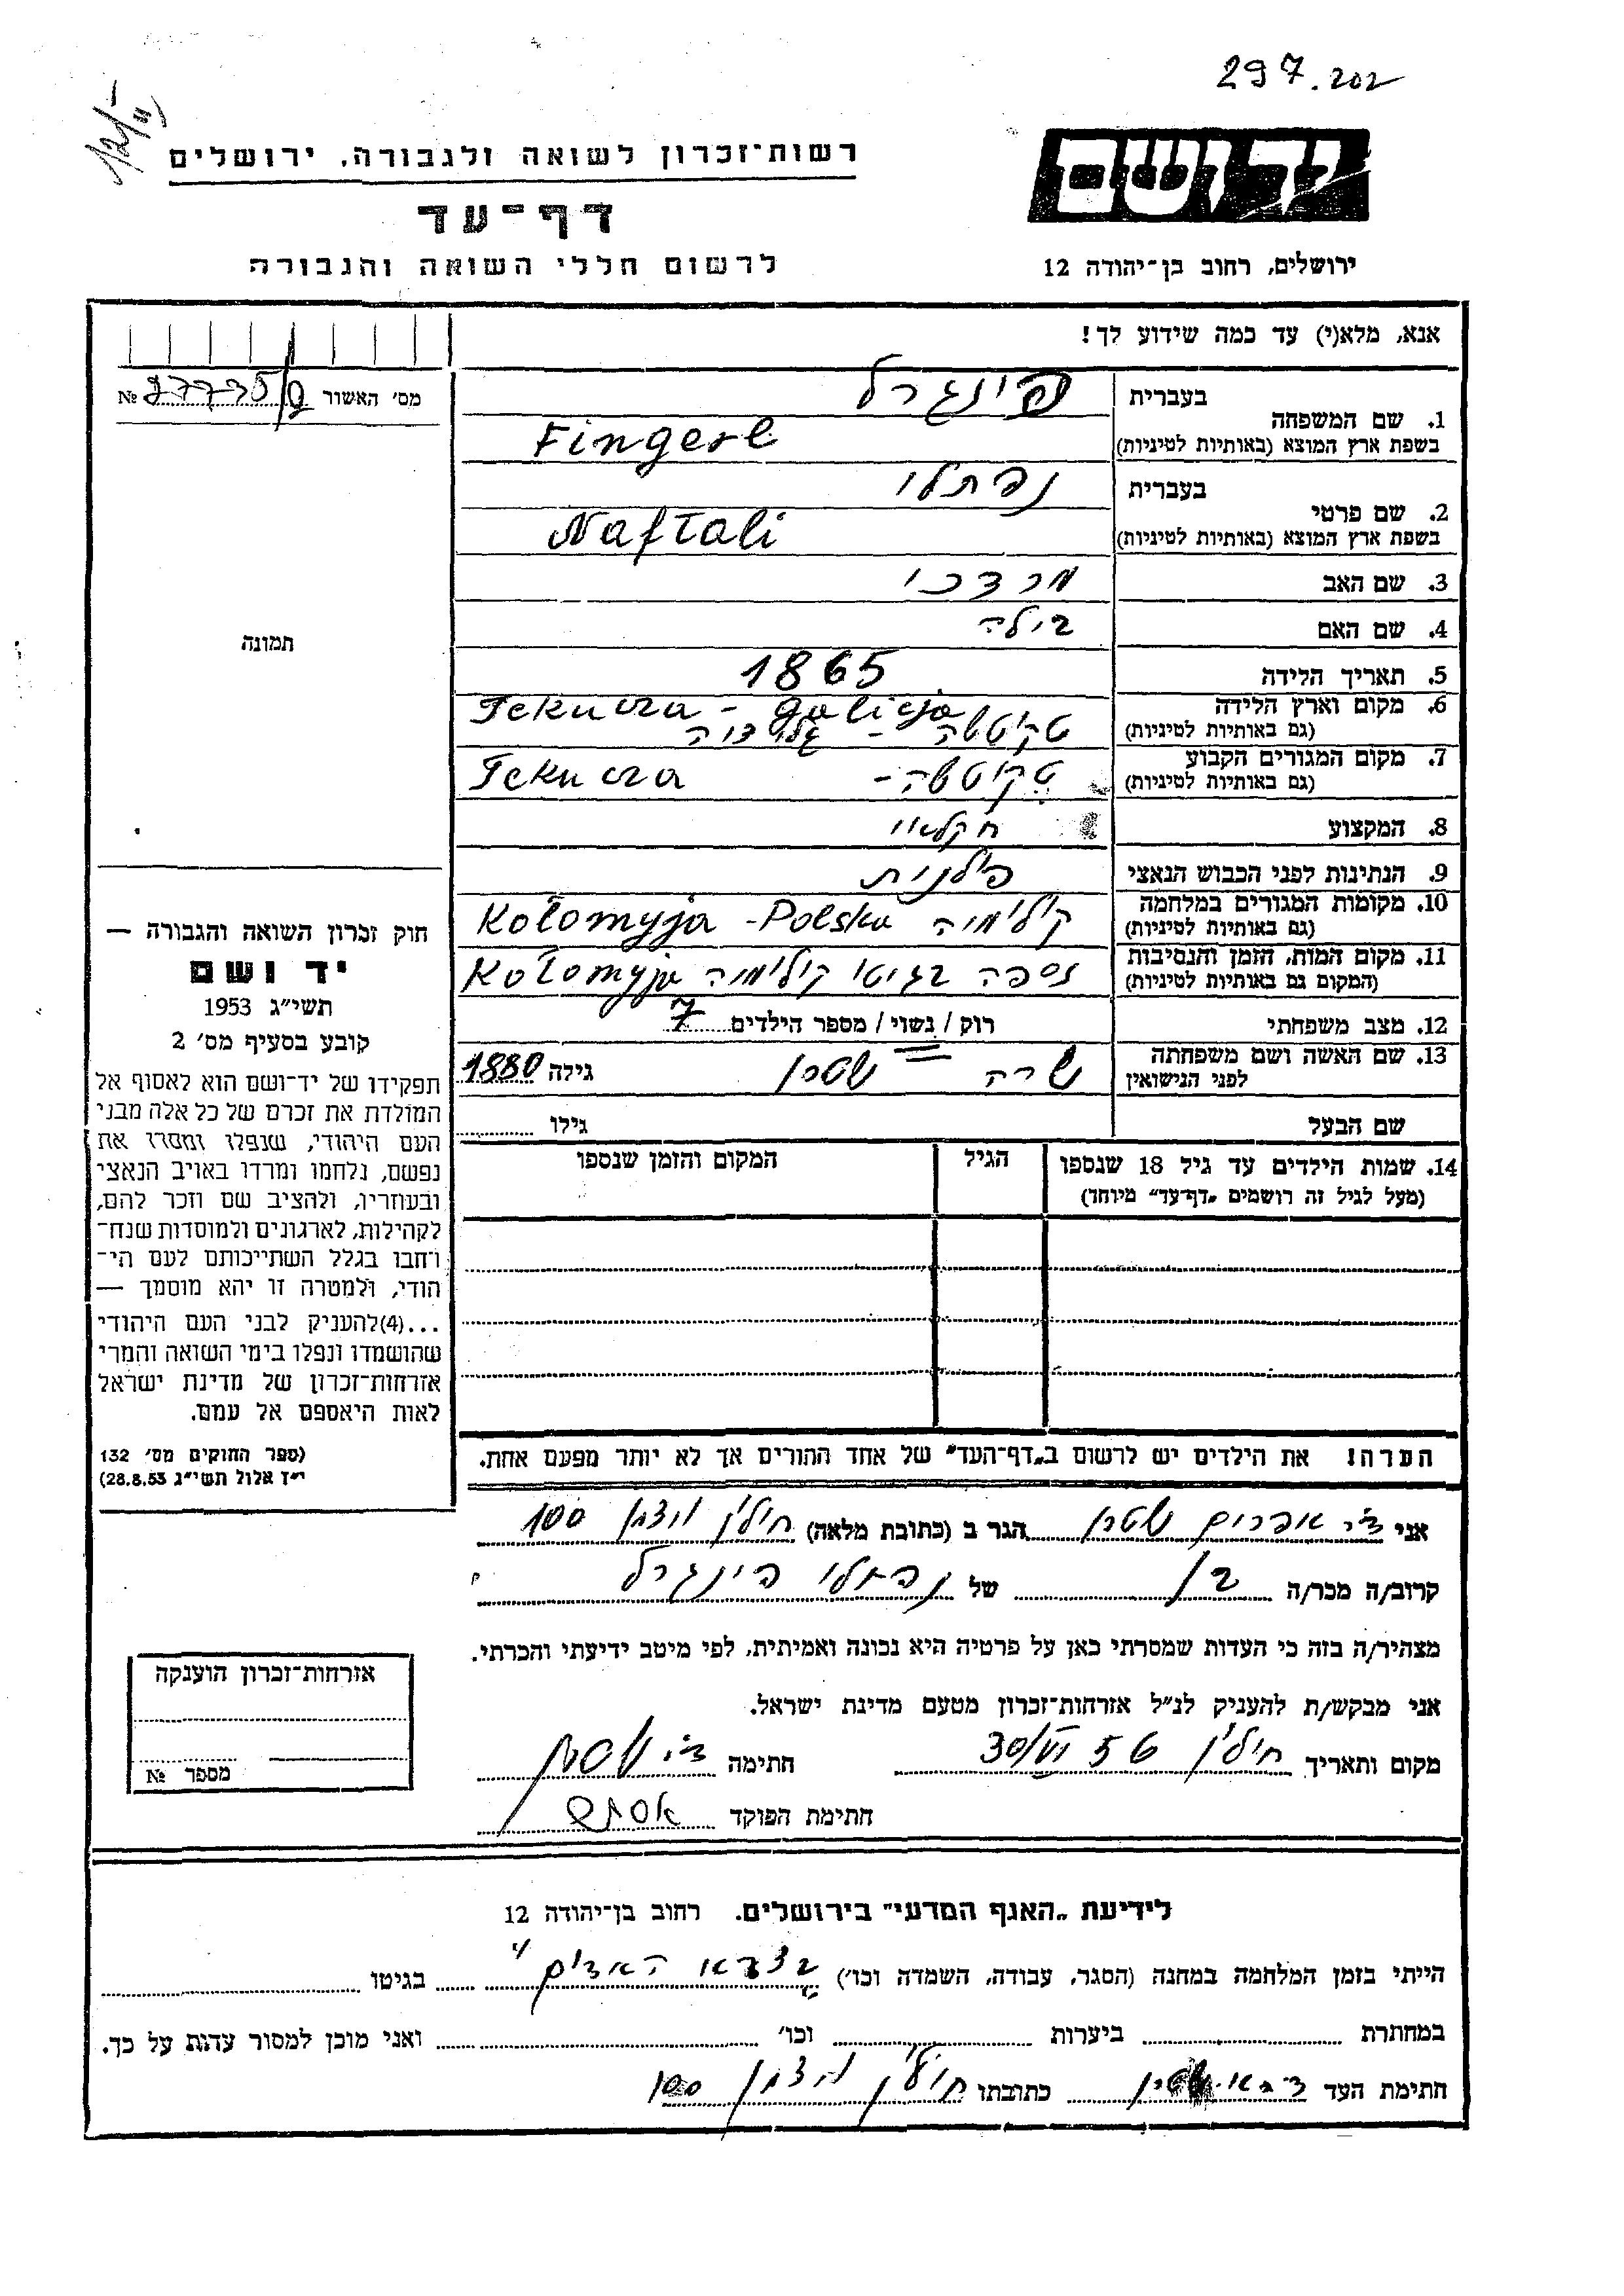 297.202
יד ושם
רשות־זכרון לשואה ולגבורה, ירושלים
דף־עד
לרשום חללי השואה והגבורה
ירושלים, רחוב בן־יהודה 12
אנא, מלא(י) עד כמה שידוע לך!
מס׳ האשור №
1. שם המשפחה בעברית פינגרל
בשפת ארץ המוצא (באותיות לטיניות) Fingerl
2. שם פרטי בעברית נפתלי
בשפת ארץ המוצא (באותיות לטיניות) Naftali
3. שם האב מרדכי
4. שם האם בילה
5. תאריך הלידה 1865
6. מקום וארץ הלידה Tekucza - galicja
(גם באותיות לטיניות) טקוטשה -
7. מקום המגורים הקבוע
(גם באותיות לטיניות) טקוטשה - Tekucza
8. המקצוע חקלאי
9. הנתינות לפני הכבוש הנאצי פולנית
10. מקומות המגורים במלחמה
(גם באותיות לטיניות) קולומיה Kołomyja - Polska
11. מקום המות, הזמן והנסיבות
(המקום גם באותיות לטיניות) נספה בגיטו קולומיה Kołomyja
12. מצב משפחתי רוק / נשוי / מספר הילדים 7
13. שם האשה ושם משפחתה שרה שטרן גילה 1880
לפני הנישואין
שם הבעל גילו
14. שמות הילדים עד גיל 18 שנספו הגיל המקום והזמן שנספו
(מעל לגיל זה רושמים „דף־עד״ מיוחד)
הערה! את הילדים יש לרשום ב„דף־העד״ של אחד ההורים אך לא יותר מפעם אחת.
תמונה
חוק זכרון השואה והגבורה —
יד ושם
תשי״ג 1953
קובע בסעיף מס׳ 2
תפקידו של יד־ושם הוא לאסוף אל
המולדת את זכרם של כל אלה מבני
העם היהודי, שנפלו ומסרו את
נפשם, נלחמו ומרדו באויב הנאצי
ובעוזריו, ולהציב שם וזכר להם,
לקהילות, לארגונים ולמוסדות שנח־
רחבו בגלל השתייכותם לעם הי־
הודי, ולמטרה זו יהא מוסמך —
...(4)להעניק לבני העם היהודי
שהושמדו ונפלו בימי השואה והמרי
אזרחות־זכרון של מדינת ישראל
לאות היאספם אל עמם.
(ספר החוקים מס׳ 132
י״ז אלול תשי״ג 28.8.53)
אני צבי אפרים שטרן הגר ב (כתובת מלאה) חולון 100
קרוב/ה מכר/ה בן של נפתלי פינגרל
מצהיר/ה בזה כי העדות שמסרתי כאן על פרטיה היא נכונה ואמיתית, לפי מיטב ידיעתי והכרתי.
אני מבקש/ת להעניק לנ״ל אזרחות־זכרון מטעם מדינת ישראל.
מקום ותאריך חולון 30/VI 56 חתימה צבי שטרן
חתימת הפוקד
אזרחות־זכרון הוענקה
מספר №
לידיעת „האגף המדעי״ בירושלים. רחוב בן־יהודה 12
הייתי בזמן המלחמה במחנה (הסגר, עבודה, השמדה וכו׳) בצבא האדום בגיטו
במחתרת ביערות וכו׳ ואני מוכן למסור עדות על כך.
חתימת העד כתובתו חולון 100